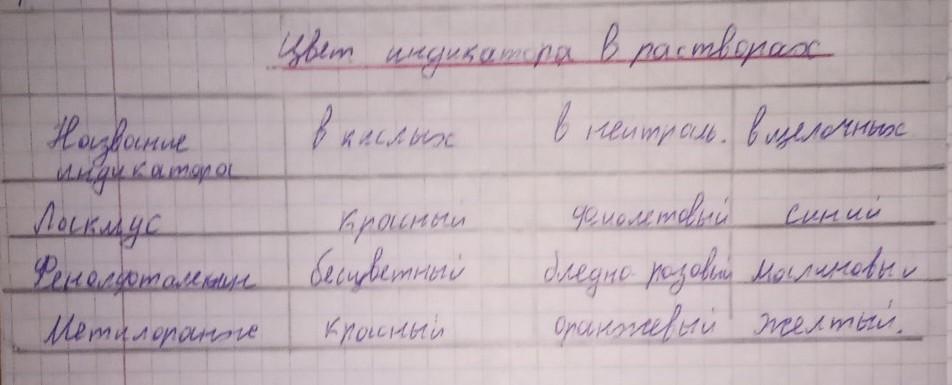 Цвет индикатора в растворах
Название индикатора в кислых в нейтраль. в щелочных
Лакмус красный фиолетовый синий
Фенолфталеин бесцветный бледно розовый малиновый
Метилоранж красный оранжевый желтый.